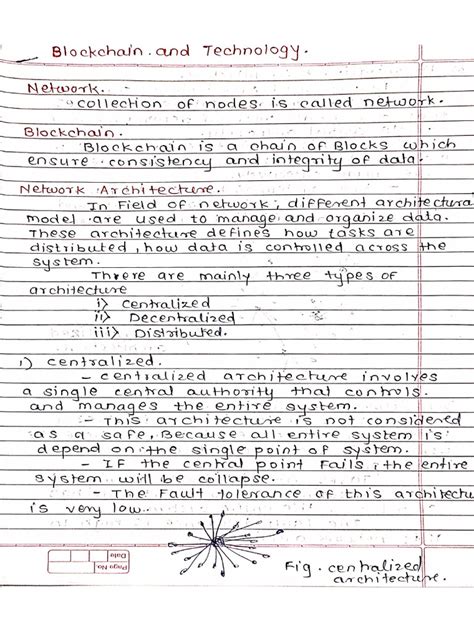 Blockchain and Technology.
Network.
collection of nodes is called network.
Blockchain.
Blockchain is a chain of Blocks which
ensure consistency and integrity of data.
Network Architecture.
In Field of network, different architectura
model are used to manage and organize data.
These architecture defines how tasks are
distributed, how data is controlled across the
system.
There are mainly three types of
architecture
i) Centralized
ii) Decentralized
iii) Distributed.
1) centralized.
- centralized architecture involves
a single central authority that controls
and manages the entire system.
- This architecture is not considered
as a safe, Because all entire system is
depend on the single point of system.
- IF the central point Fails, the entire
system will be collapse.
- The Fault tolerance of this architectu
is very low.
Fig. centralized
architecture.
Page No.
Date